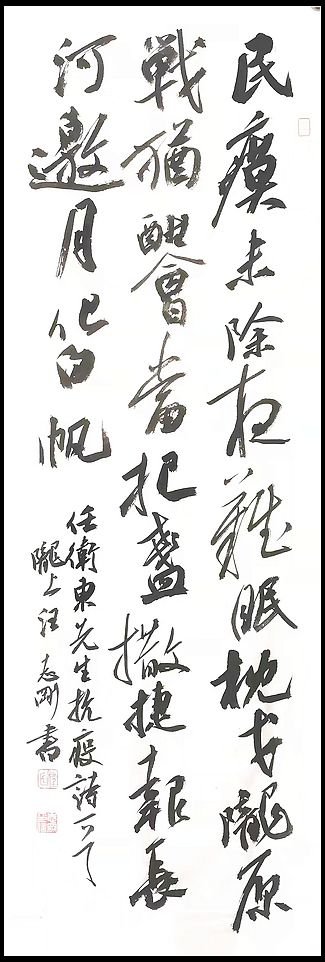 民瘼未除夜難眠枕戈隴原
戦猶酣會當把盞撒捷報長
河邀月化白帆
任衛東先生抗疫詩一首
隴上汪志剛書